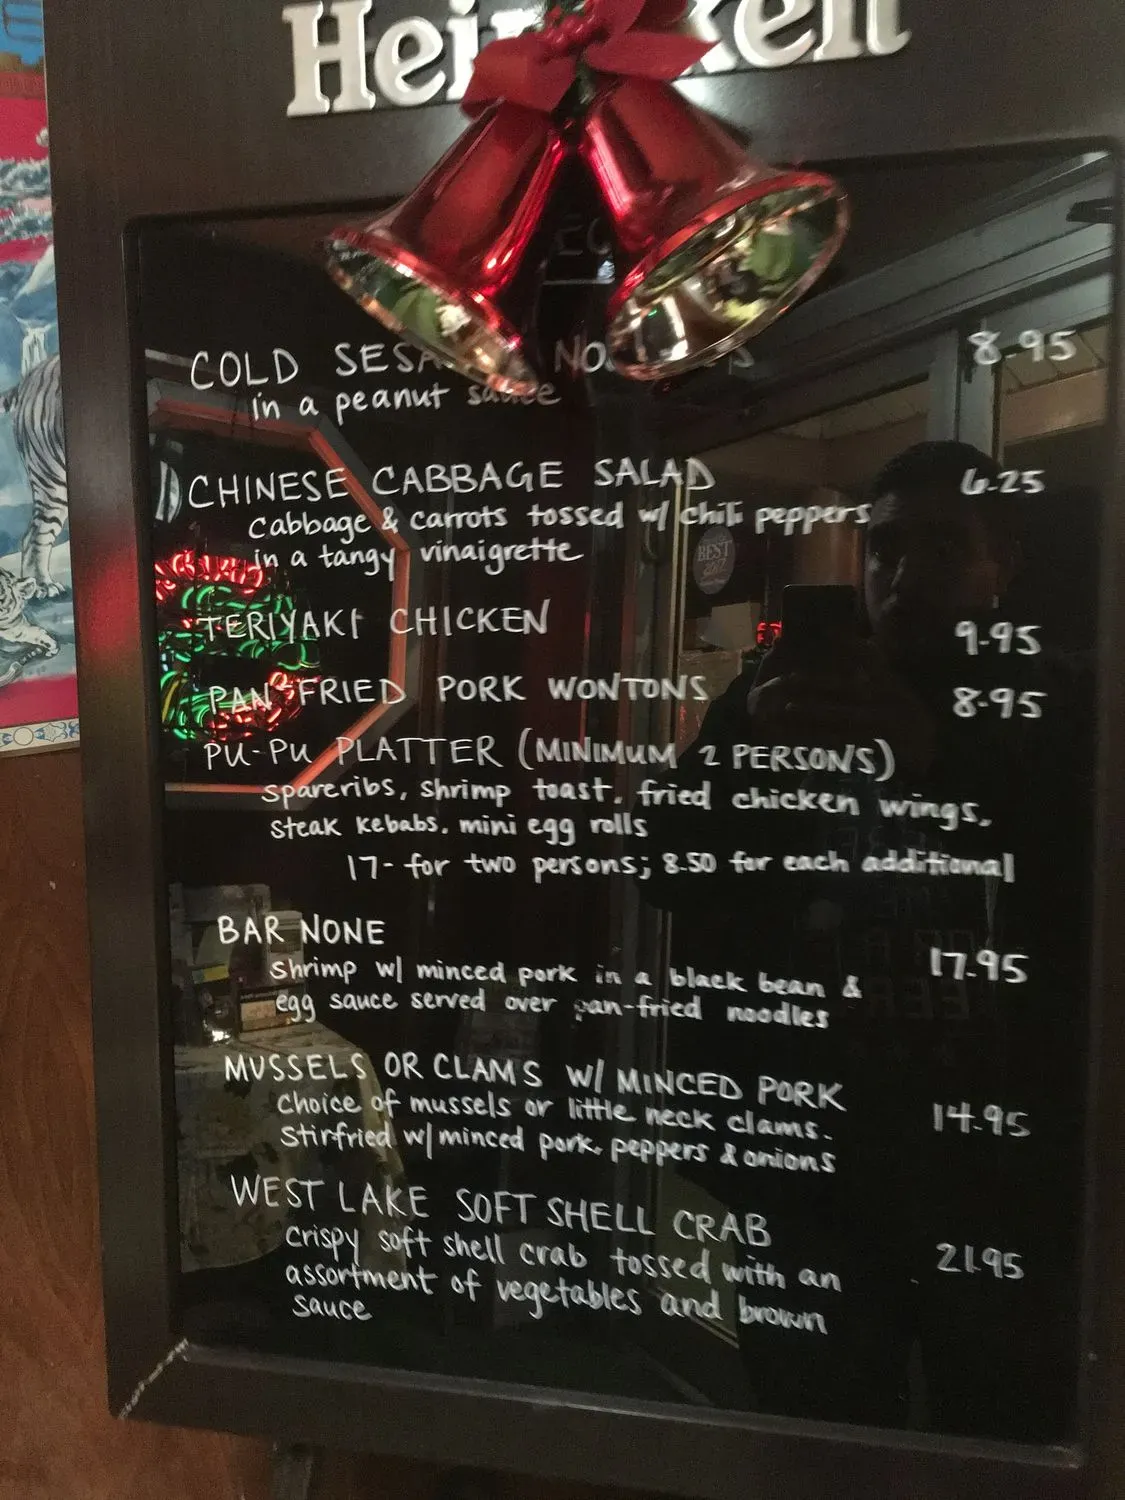 Heineken
COLD SESAME NOODLES 8.95
in a peanut sauce
CHINESE CABBAGE SALAD 6.25
Cabbage & carrots tossed w/ chili peppers
in a tangy vinaigrette
BEST
TERIYAKI CHICKEN 9.95
PAN-FRIED PORK WONTONS 8.95
PU-PU PLATTER (MINIMUM 2 PERSONS)
spareribs, shrimp toast, fried chicken wings,
steak kebabs, mini egg rolls
17- for two persons; 8.50 for each additional
BAR NONE 17.95
shrimp w/ minced pork in a black bean &
egg sauce served over pan-fried noodles
MUSSELS OR CLAMS W/ MINCED PORK 14.95
Choice of mussels or little neck clams.
Stirfried w/ minced pork, peppers & onions
WEST LAKE SOFT SHELL CRAB 21.95
Crispy soft shell crab tossed with an
assortment of vegetables and brown
sauce